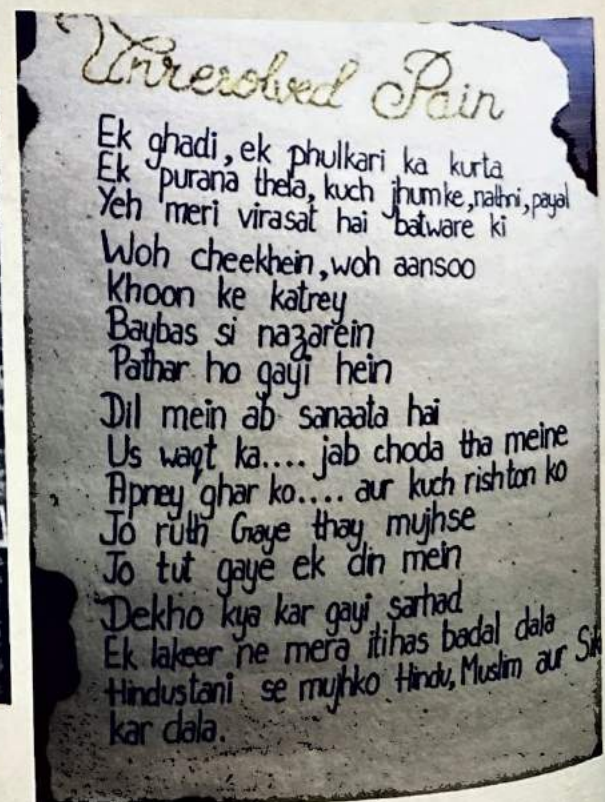 Unresolved Pain
Ek ghadi, ek phulkari ka kurta
Ek purana thela, kuch jhumke, nathni, payal
Yeh meri virasat hai batware ki
Woh cheekhein, woh aansoo
Khoon ke katrey
Baybas si nazarein
Pathar ho gayi hein
Dil mein ab sanaata hai
Us waqt ka.... jab choda tha meine
Apney ghar ko.... aur kuch rishton ko
Jo ruth Gaye thay mujhse
Jo tut gaye ek din mein
Dekho kya kar gayi sarhad
Ek lakeer ne mera itihas badal dala
Hindustani se mujhko Hindu, Muslim aur
kar dala.